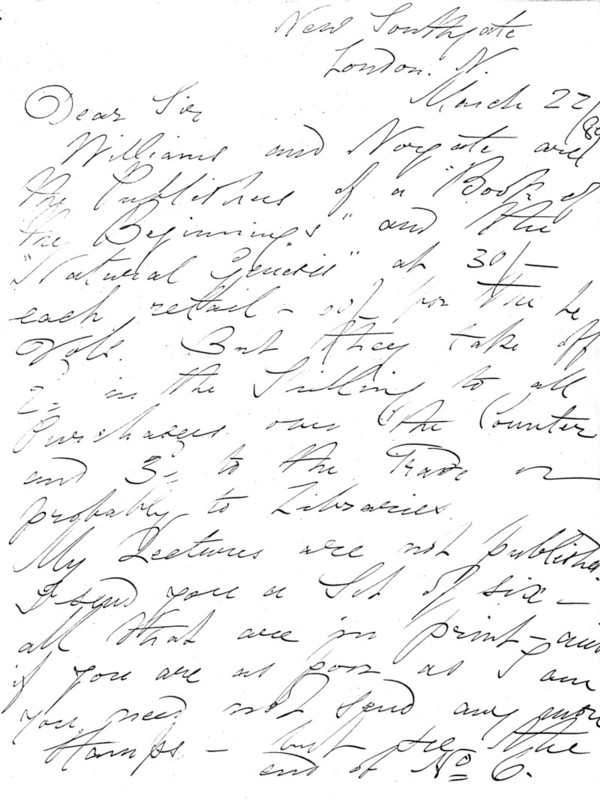 New Southgate
London. N.
March 22/89
Dear Sir
Williams and Norgate are
the Publishers of a "Book of
the Beginnings" and the
"Natural Genesis" at 30/-
each retail - for the
Vols. But they take off
2d in the Shilling to all
Purchasers over the Counter
and 3d to the Trade or
probably to Libraries
My Lectures are not published
I send you a Set of six -
all that are in print - and
if you are as poor as I am
you need not send any more
Stamps - but see the
end of No 6.